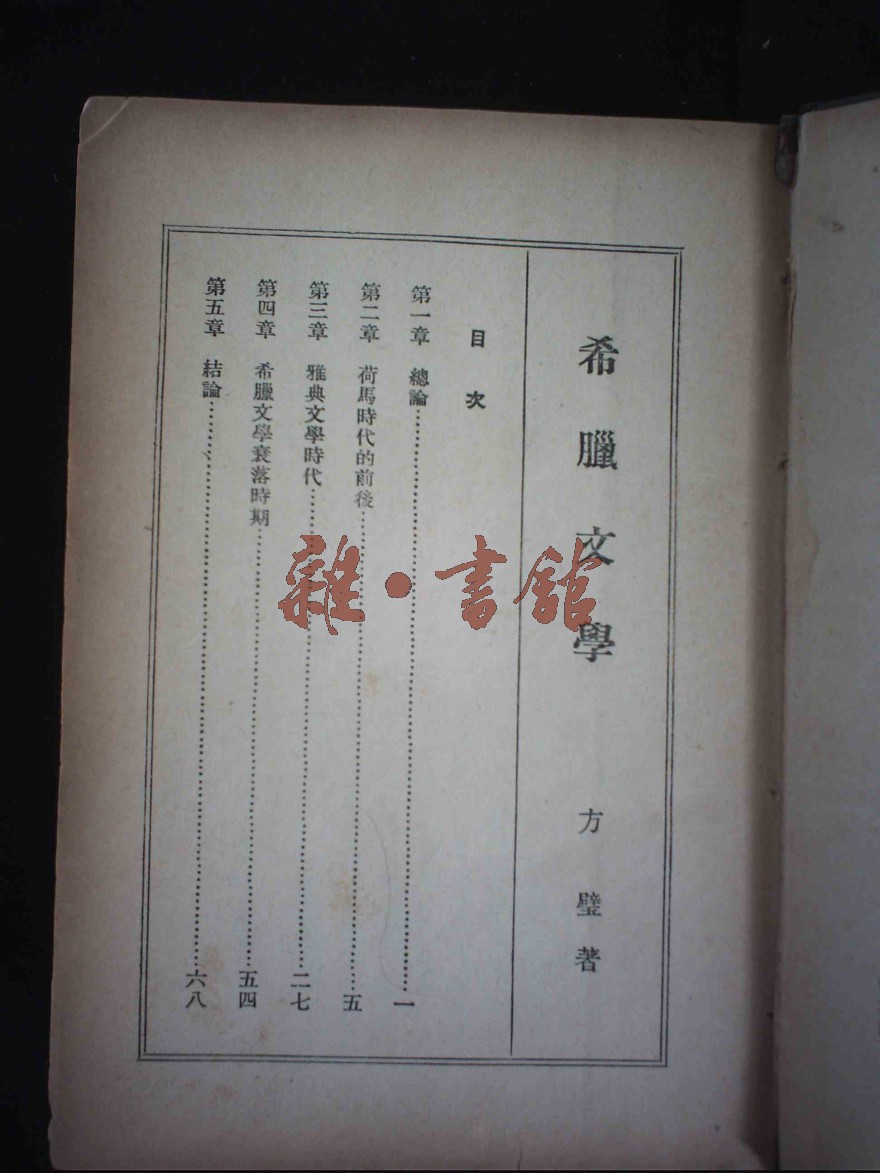 希臘文學 方璧著
目次
第一章 總論……一
第二章 荷馬時代的前後……五
第三章 雅典文學時代……二七
第四章 希臘文學衰落時期……五四
第五章 結論……六八
雜·書館